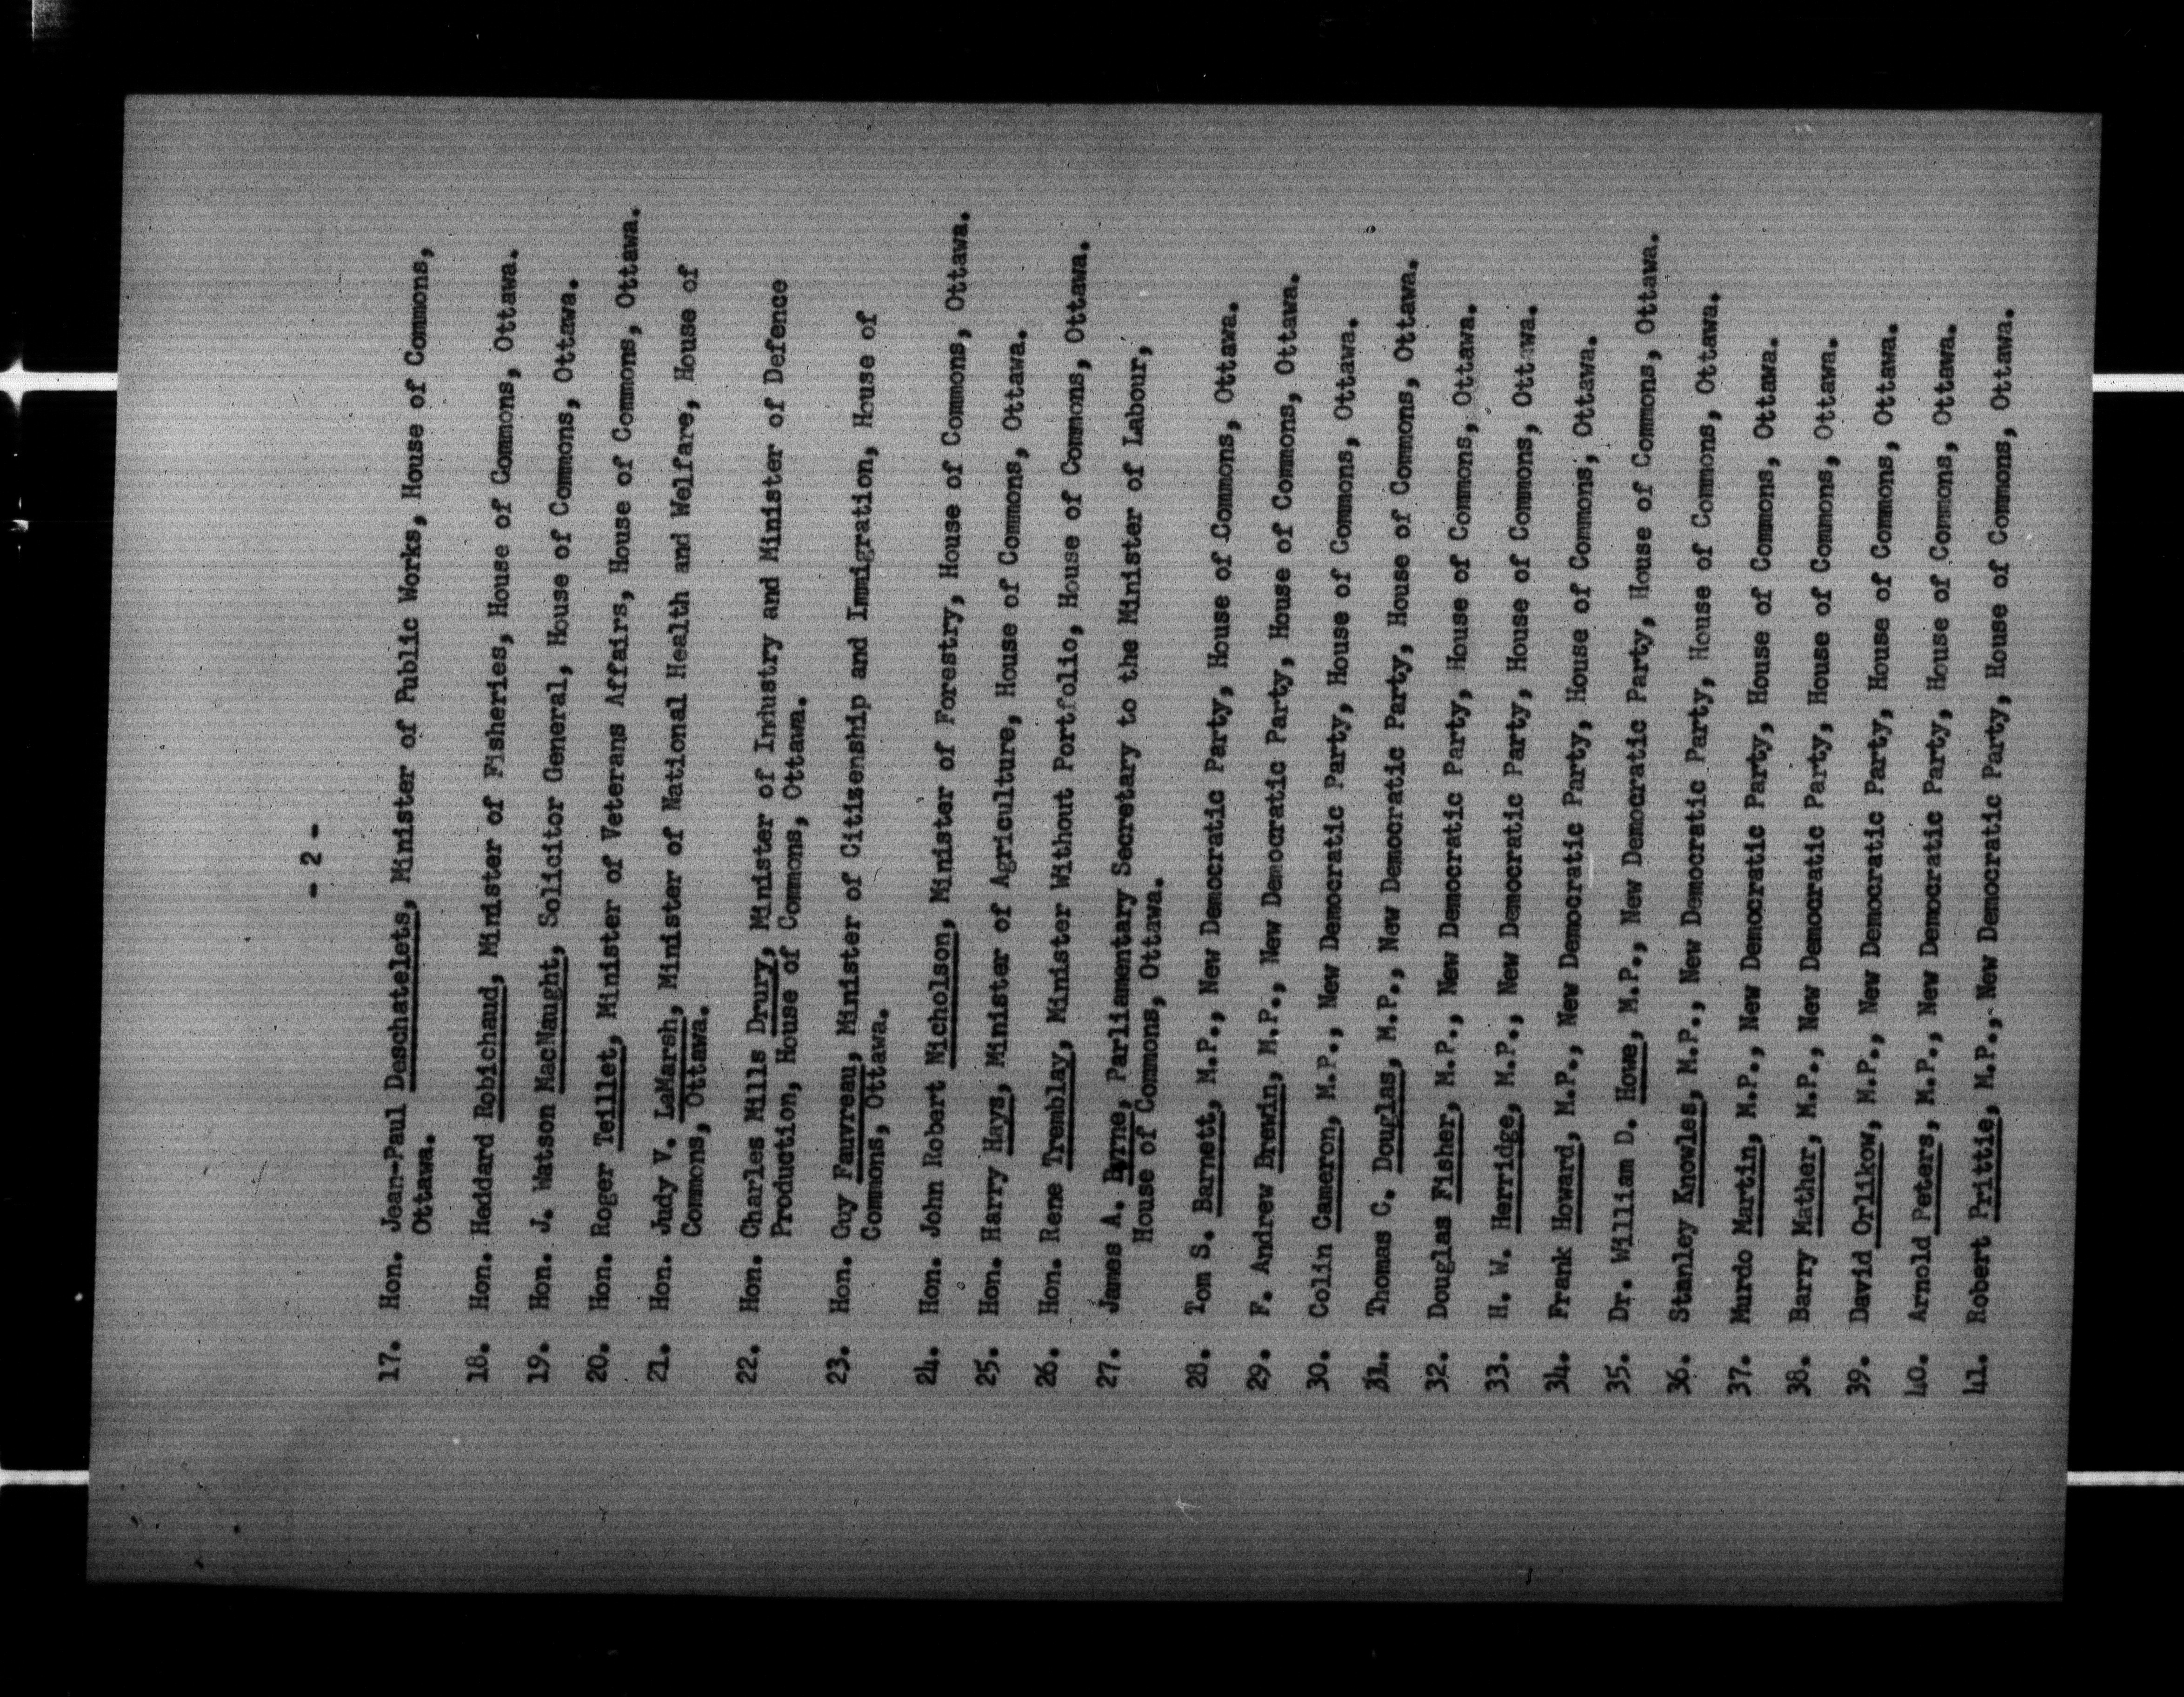 - 2 -
17. Hon. Jean-Paul Deschatelets, Minister of Public Works, House of Commons,
Ottawa.
18. Hon. Heddard Robichaud, Minister of Fisheries, House of Commons, Ottawa.
19. Hon. J. Watson MacNaught, Solicitor General, House of Commons, Ottawa.
20. Hon. Roger Teillet, Minister of Veterans Affairs, House of Commons, Ottawa.
21. Hon. Judy V. LaMarsh, Minister of National Health and Welfare, House of
Commons, Ottawa.
22. Hon. Charles Mills Drury, Minister of Industry and Minister of Defence
Production, House of Commons, Ottawa.
23. Hon. Guy Fauvreau, Minister of Citizenship and Immigration, House of
Commons, Ottawa.
24. Hon. John Robert Nicholson, Minister of Forestry, House of Commons, Ottawa.
25. Hon. Harry Hays, Minister of Agriculture, House of Commons, Ottawa.
26. Hon. Rene Tremblay, Minister Without Portfolio, House of Commons, Ottawa.
27. James A. Byrne, Parliamentary Secretary to the Minister of Labour,
House of Commons, Ottawa.
28. Tom S. Barnett, M.P., New Democratic Party, House of Commons, Ottawa.
29. F. Andrew Brewin, M.P., New Democratic Party, House of Commons, Ottawa.
30. Colin Cameron, M.P., New Democratic Party, House of Commons, Ottawa.
31. Thomas C. Douglas, M.P., New Democratic Party, House of Commons, Ottawa.
32. Douglas Fisher, M.P., New Democratic Party, House of Commons, Ottawa.
33. H. W. Herridge, M.P., New Democratic Party, House of Commons, Ottawa.
34. Frank Howard, M.P., New Democratic Party, House of Commons, Ottawa.
35. Dr. William D. Howe, M.P., New Democratic Party, House of Commons, Ottawa.
36. Stanley Knowles, M.P., New Democratic Party, House of Commons, Ottawa.
37. Murdo Martin, M.P., New Democratic Party, House of Commons, Ottawa.
38. Barry Mather, M.P., New Democratic Party, House of Commons, Ottawa.
39. David Orlikow, M.P., New Democratic Party, House of Commons, Ottawa.
40. Arnold Peters, M.P., New Democratic Party, House of Commons, Ottawa.
41. Robert Prittie, M.P., New Democratic Party, House of Commons, Ottawa.